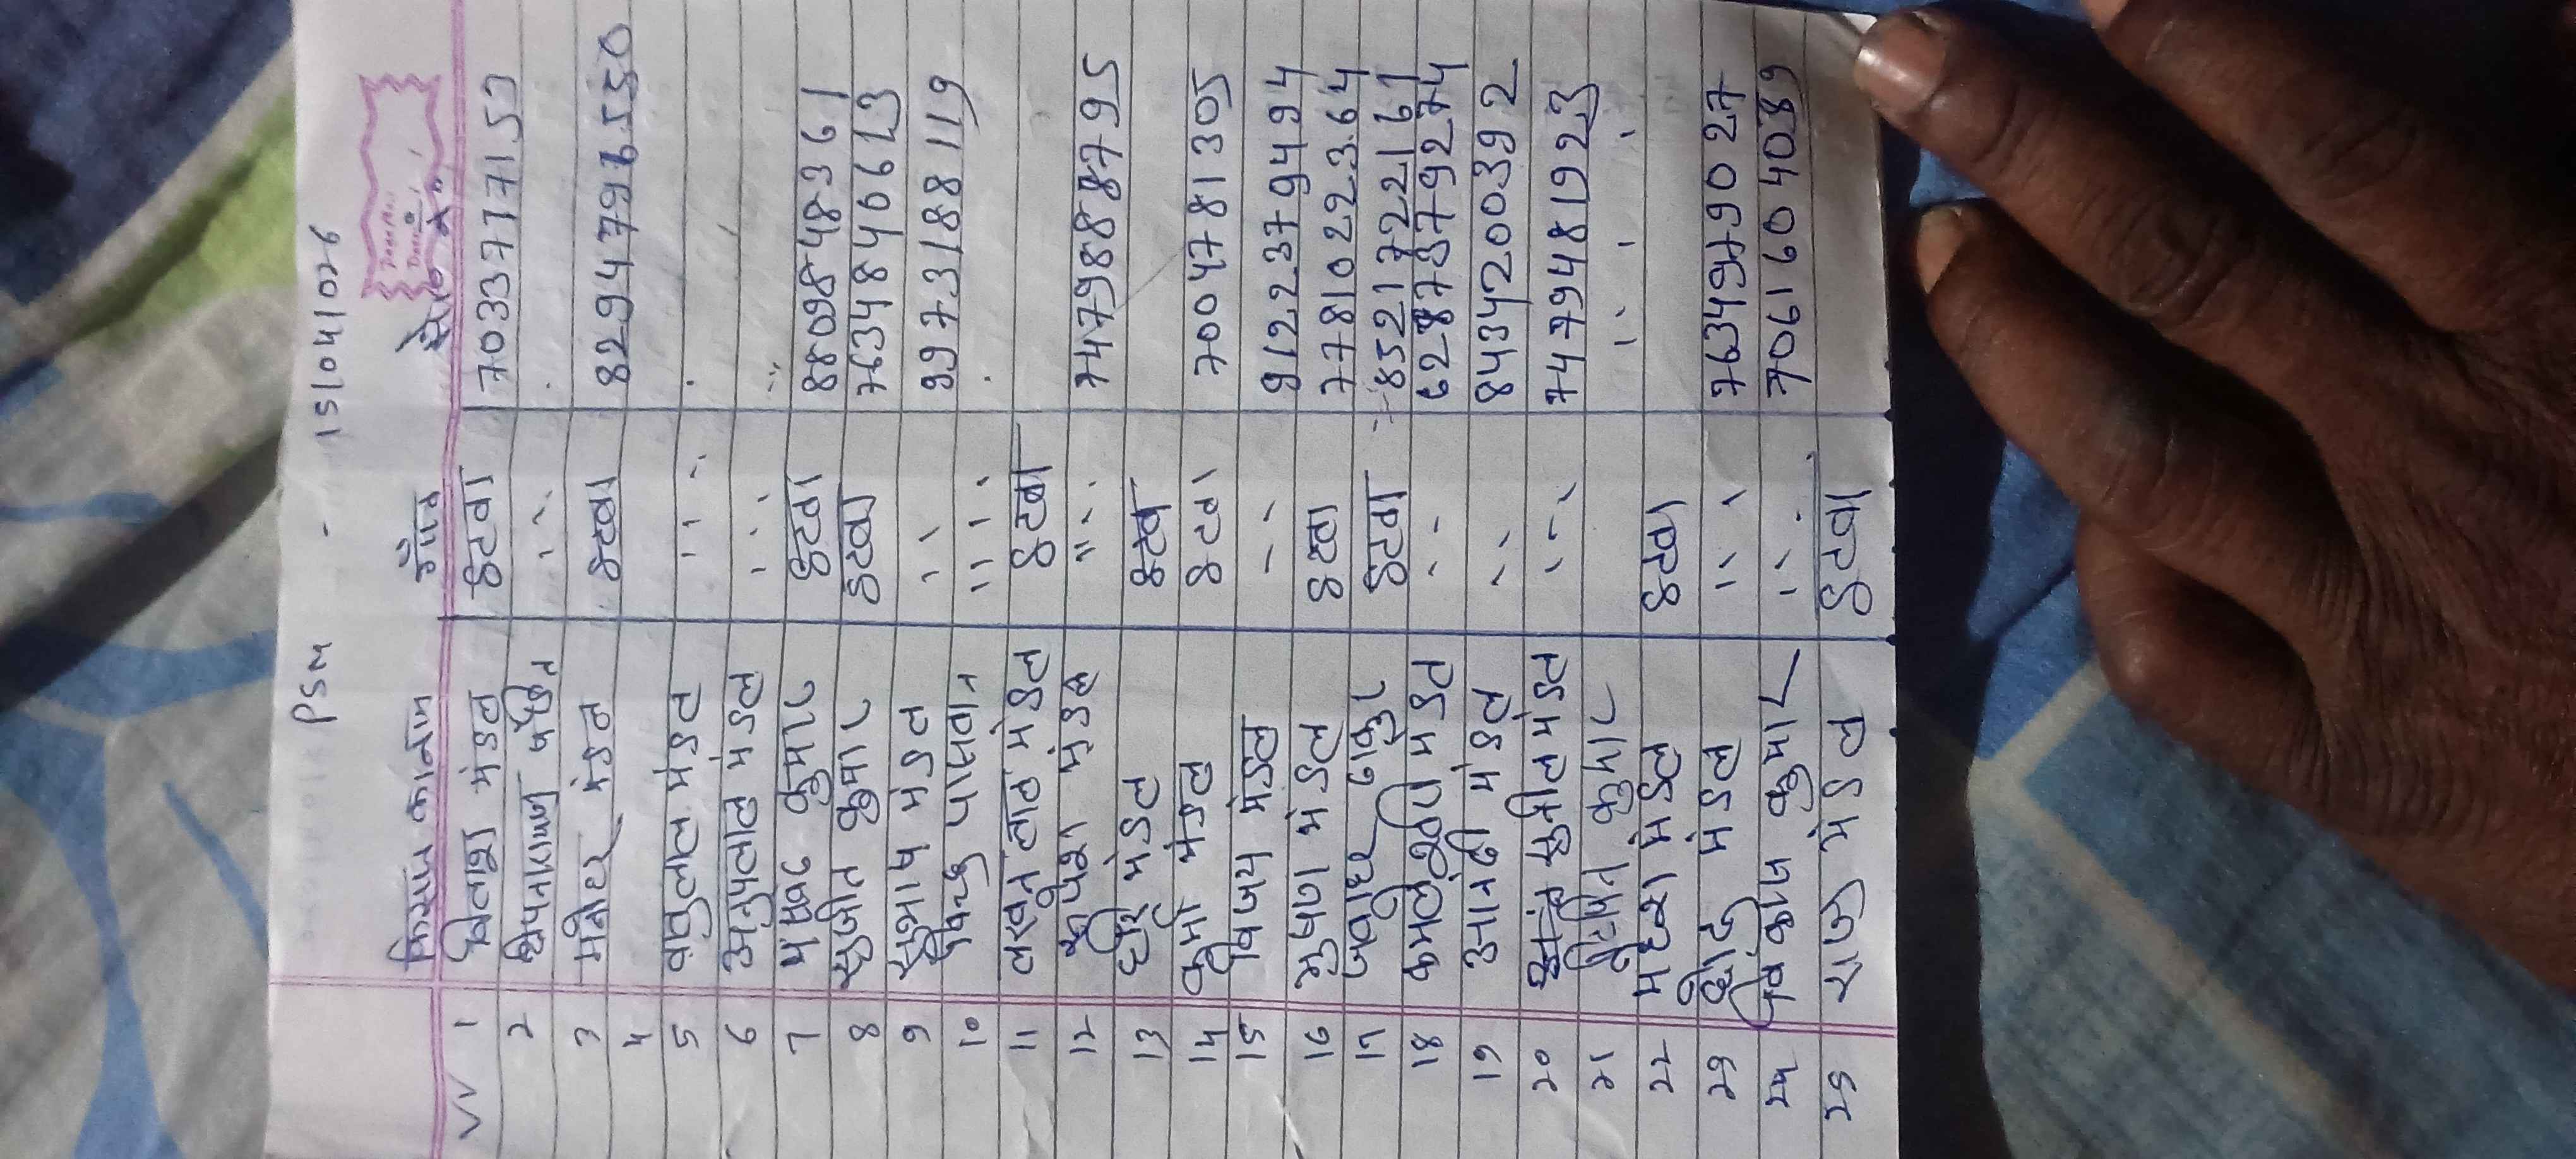 PSM - 15/04/026
किसान का नाम गाँव मो० न०
Date
1 मंडल इटवा 7033717153
2 शिवनारायण पंडित " "
3 मनोहर मंडल इटवा 8294779655
4
5 बाबुलाल मंडल " "
6 अनुपलाल मंडल " "
7 कुमार इटवा 8809848361
8 सुजीत कुमार इटवा 7634840613
9 सुभाष मंडल " " 9973188119
10 पासवान " "
11 लखन लाल मंडल इटवा
12 रूपेश मंडल " " 7479888795
13 मंडल इटवा
14 मंडल इटवा 7004781305
15 विजय मंडल " " 9122379494
16 भुषण मंडल इटवा 7781022364
17 जवाहर ठाकुर इटवा 8521722161
18 कमलेश्वरी मंडल " " 6287379274
19 आनन्दी मंडल " " 8434200392
20 सुनील मंडल " " 7479481923
21 कुमार " "
22 महेश मंडल इटवा
23 मंडल " " 7634979027
24 विकास कुमार " " 7061604039
25 राजु मंडल इटवा